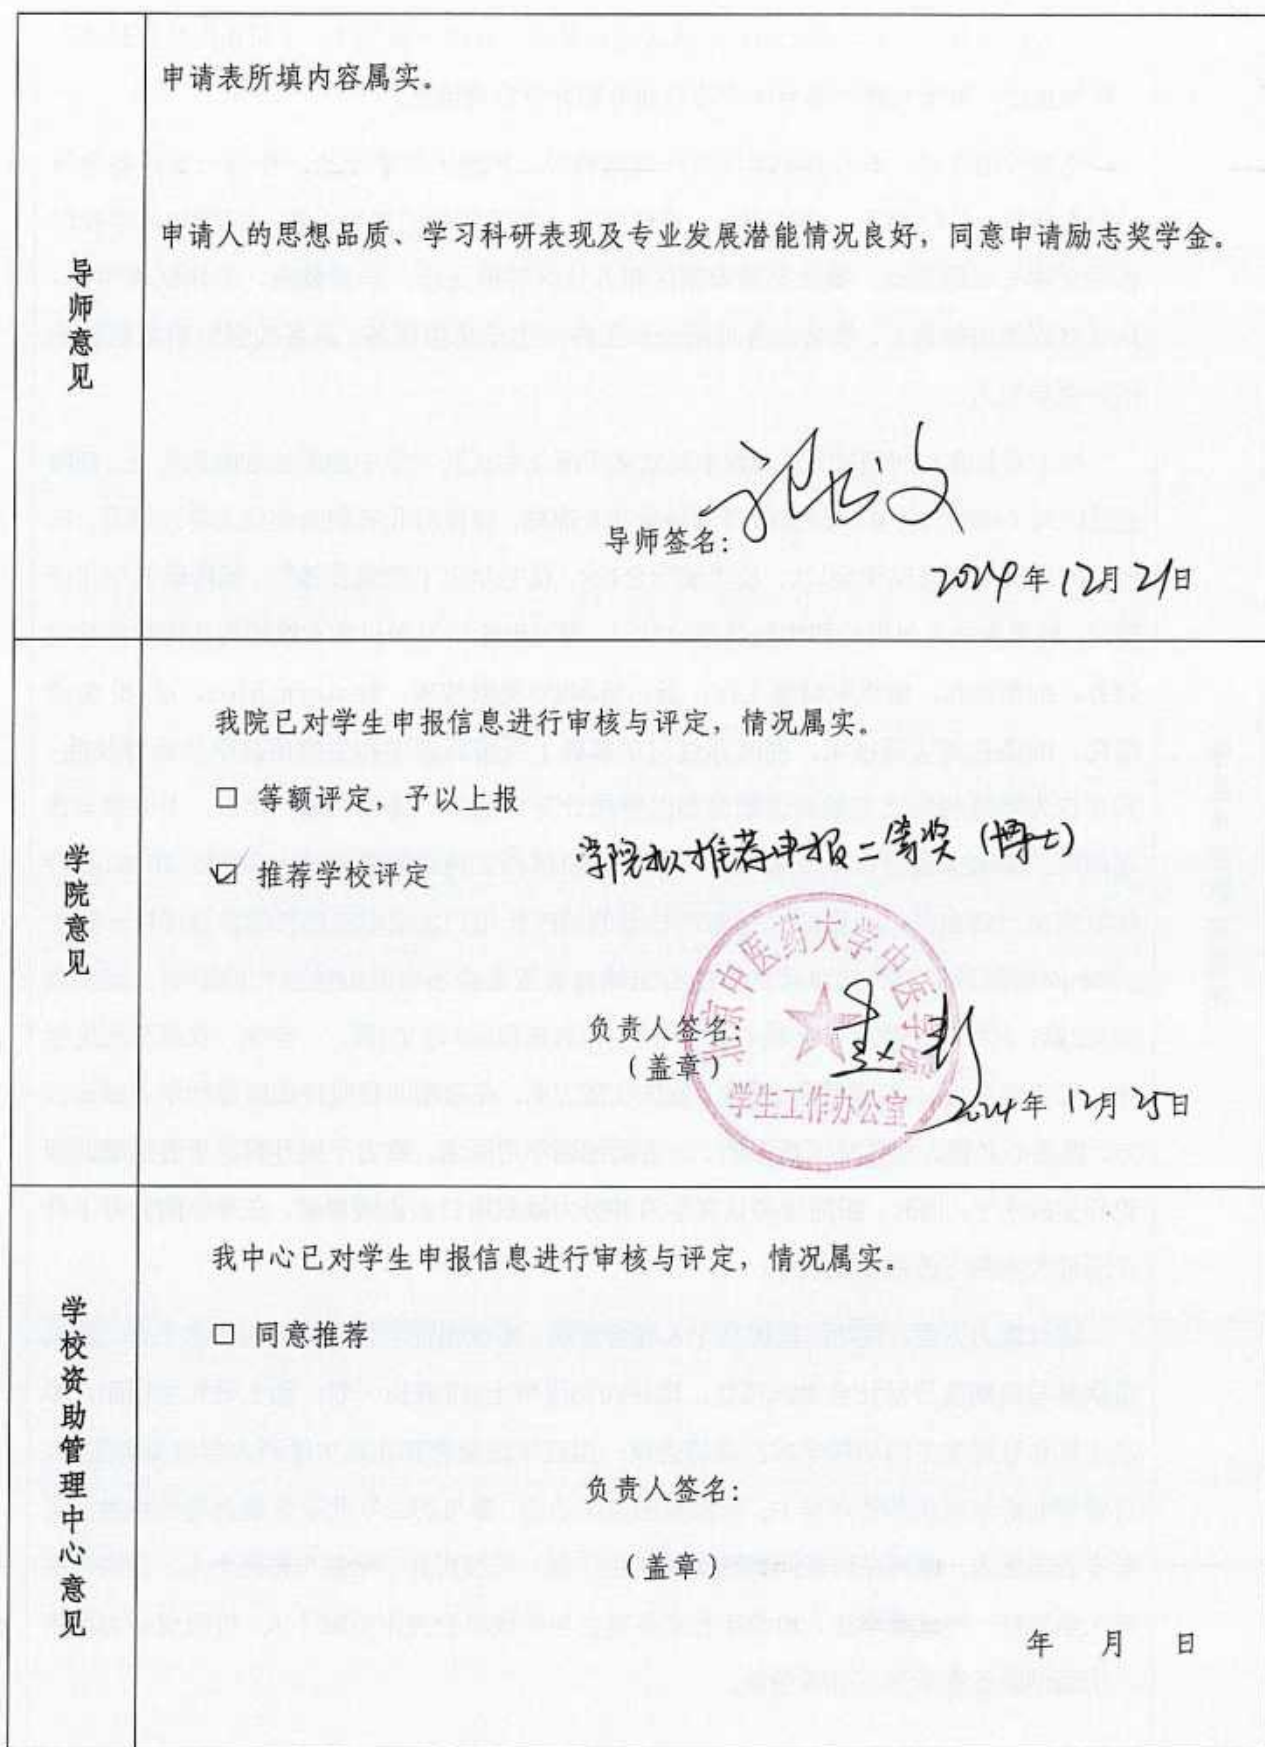 导师意见
申请表所填内容属实。
申请人的思想品质、学习科研表现及专业发展潜能情况良好，同意申请励志奖学金。
导师签名：
2024年12月21日
学院意见
我院已对学生申报信息进行审核与评定，情况属实。
□ 等额评定，予以上报
学院拟推荐申报二等奖（博士）
☑ 推荐学校评定
北京中医药大学中医学院
学生工作办公室
负责人签名：
（盖章）
2024年 12月 25日
学校资助管理中心意见
我中心已对学生申报信息进行审核与评定，情况属实。
□ 同意推荐
负责人签名：
（盖章）
年 月 日